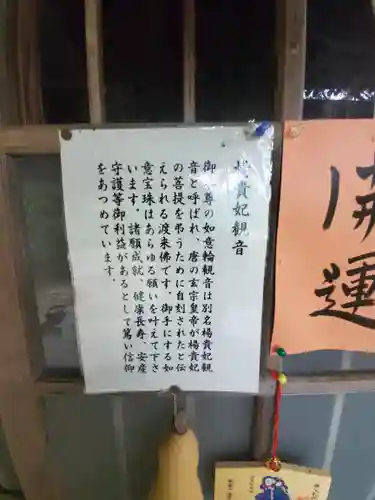 楊貴妃観音
御本尊の如意輪観音は別名楊貴妃観
音と呼ばれ、唐の玄宗皇帝が楊貴妃
の菩提を弔うために自刻されたと伝
えられる渡来佛です。御手にする如
意宝珠はあらゆる願いを叶えて下さ
います。諸願成就、健康長寿、安産
守護等御利益があるとして篤い信仰
をあつめています。
開運